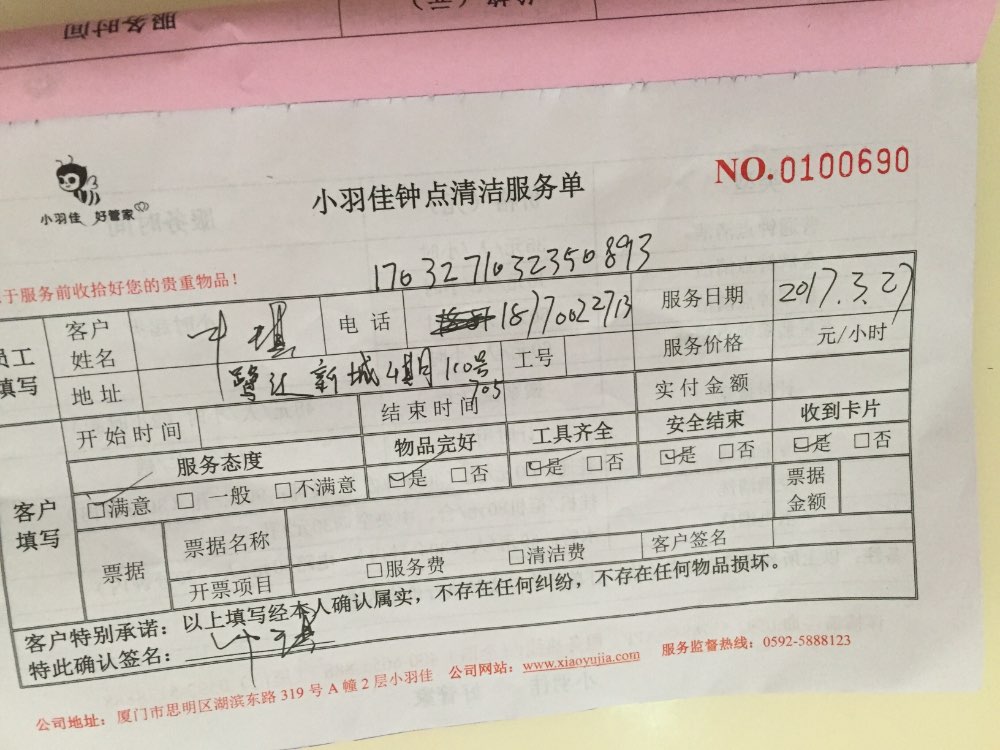 服务时间
小羽佳 好管家
小羽佳钟点清洁服务单
NO.0100690
于服务前收拾好您的贵重物品！
17032710323350893
员工填写
客户姓名
电话 18770022713
服务日期 2017.3.27
地址 新城4期110号705
工号
服务价格 元/小时
开始时间
结束时间
实付金额
客户填写
服务态度
物品完好
工具齐全
安全结束
收到卡片
☑满意 □一般 □不满意
☑是 □否
☑是 □否
☑是 □否
☑是 □否
票据
票据名称
票据金额
开票项目
□服务费 □清洁费
客户签名
客户特别承诺：以上填写经本人确认属实，不存在任何纠纷，不存在任何物品损坏。
特此确认签名：
公司地址：厦门市思明区湖滨东路319号A幢2层小羽佳 公司网站：www.xiaoyujia.com 服务监督热线：0592-5888123